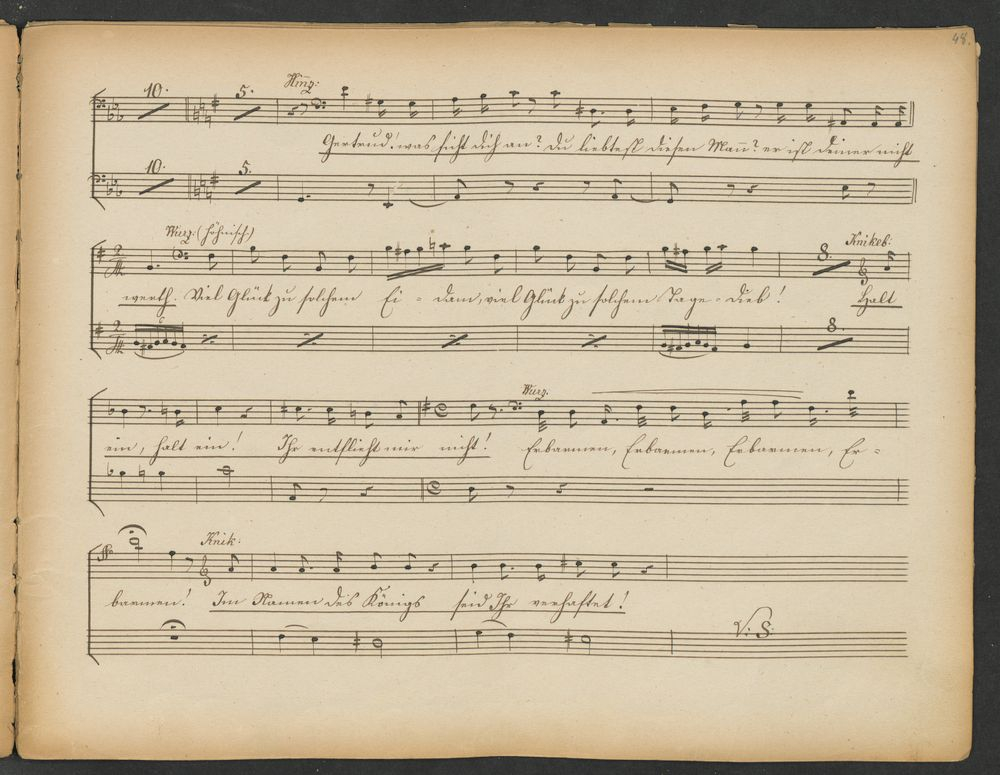 48.
10. 5. Hinz:
Gertrud! was ficht dich an? Du liebtest diesen Mañ? er ist deiner nicht
10. 5.
Wurz: (höhnisch) 8. Knikeb:
werth. Viel Glück zu solchem Ei - dam, viel Glück zu solchem Tage - dieb! Halt
8.
Wurz.
ein, halt ein! Ihr entflieht mir nicht! Erbarmen, Erbarmen, Erbarmen, Er =
Knik:
barmen! Im Namen des Königs seid Ihr verhaftet!
V. S: